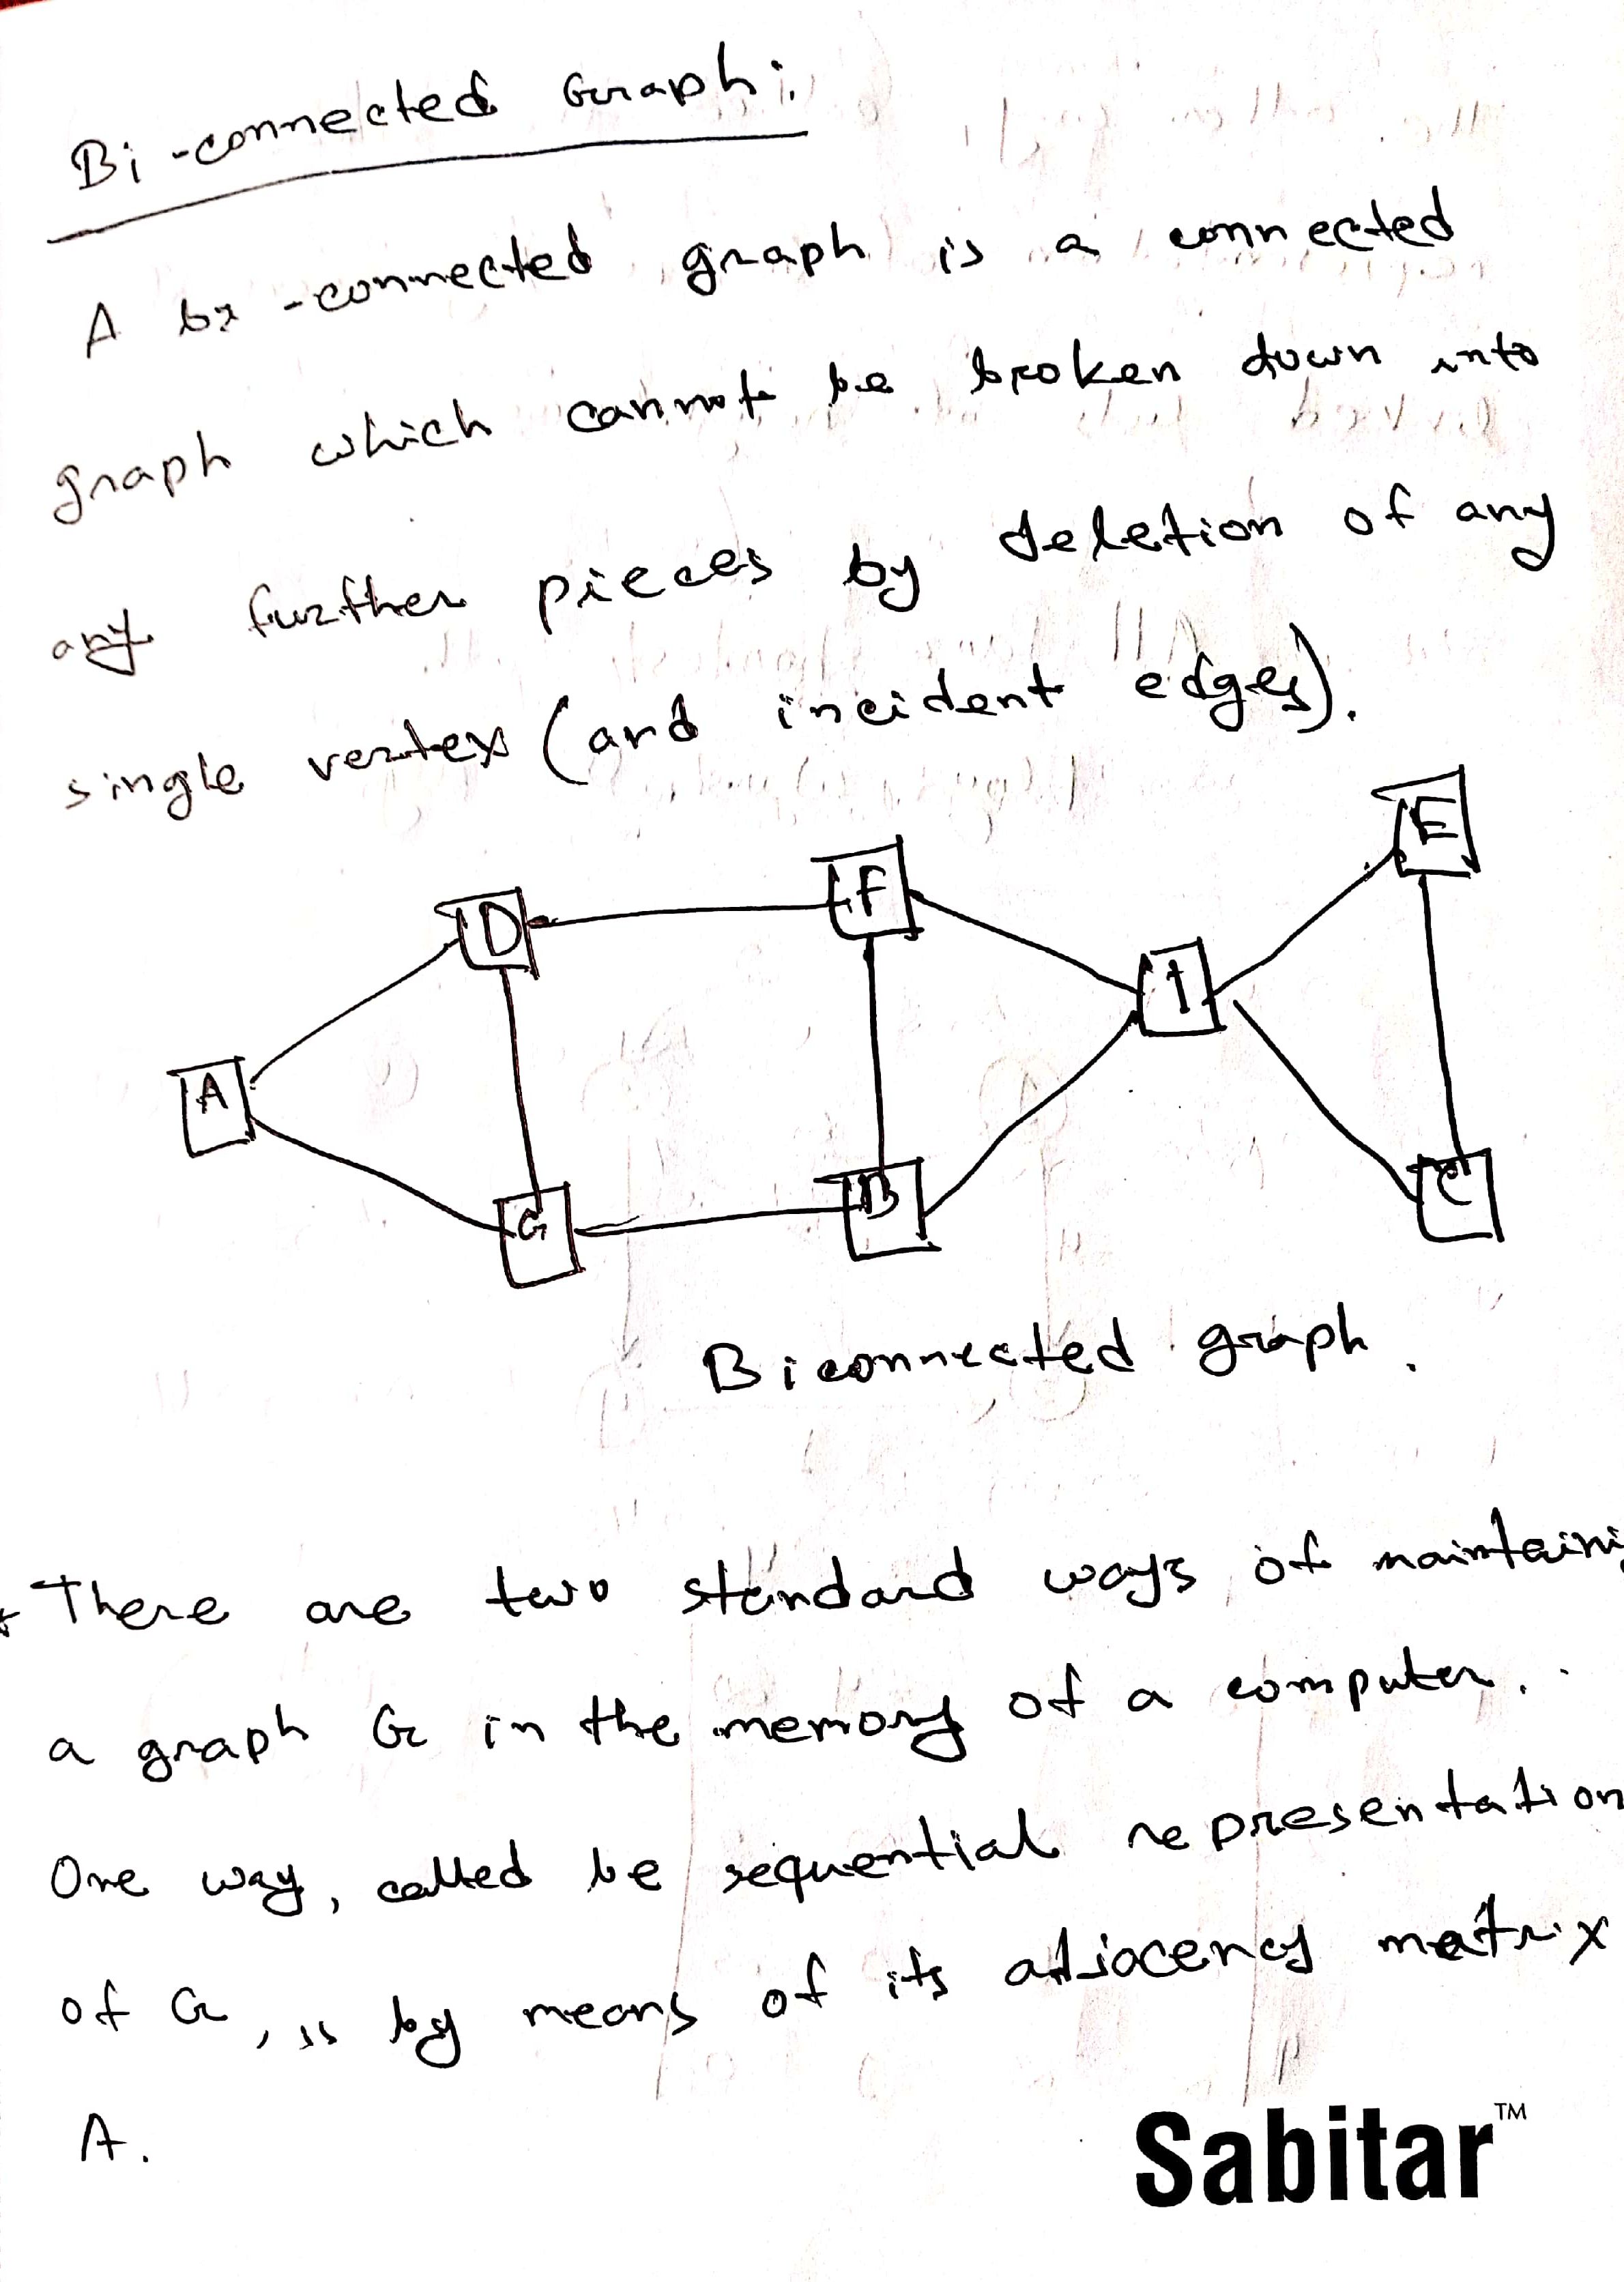 Bi-connected Graph:
A bi-connected graph is a connected
graph which cannot be broken down into
any further pieces by deletion of any
single vertex (and incident edges).
E
D F
I
A
G B C
Biconnected graph.
* There are two standard ways of maintaini
a graph G in the memory of a computer.
One way, called be sequential representation
of G, is by means of its adjacency matrix
A.
Sabitar™